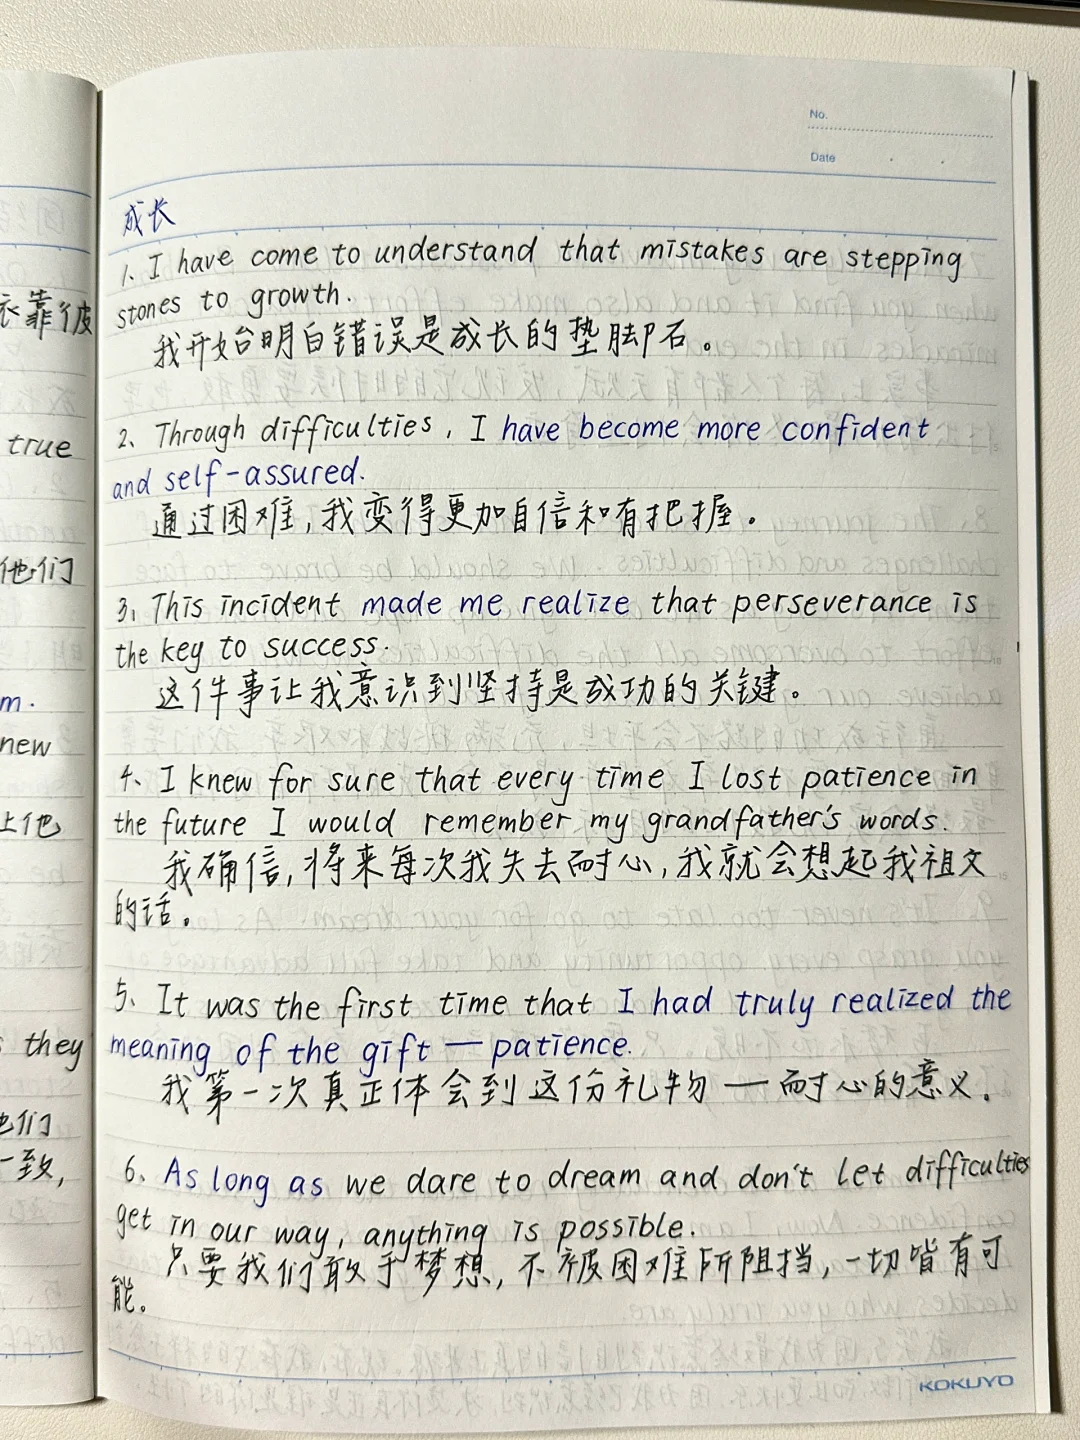 No.
Date
成长
1、I have come to understand that mistakes are stepping
stones to growth.
我开始明白错误是成长的垫脚石。
2、Through difficulties, I have become more confident
and self-assured.
通过困难,我变得更加自信和有把握。
3、This incident made me realize that perseverance is
the key to success.
这件事让我意识到坚持是成功的关键。
4、I knew for sure that every time I lost patience in
the future I would remember my grandfather's words.
我确信,将来每次我失去耐心,我就会想起我祖父
的话。
5、It was the first time that I had truly realized the
meaning of the gift — patience.
我第一次真正体会到这份礼物 — 耐心的意义。
6、As long as we dare to dream and don't let difficulties
get in our way, anything is possible.
只要我们敢于梦想,不被困难所阻挡,一切皆有可
能。
KOKUYO
靠彼
true
他们
m.
new
上他
they
他们
一致,